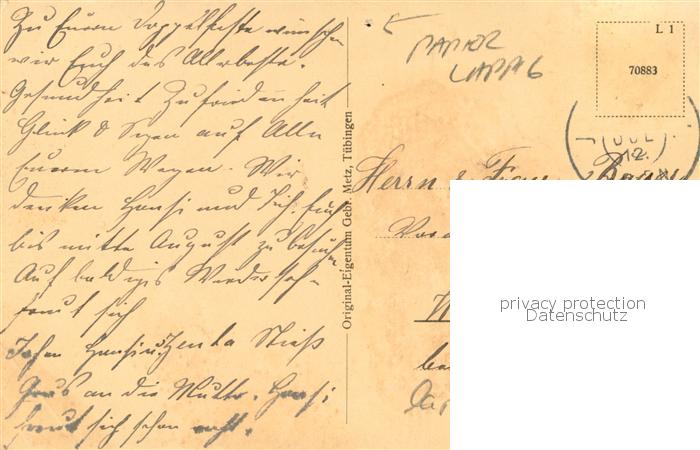 Zu Eurem Doppelfeste wünschen
wir Euch das Allerbeste.
Gesundheit Zufriedenheit
Glück & Segen auf Allen
Euren Wegen. Wir
denken Hansi und Ich, Euch
bis mitte August zu besuchen
Auf baldiges Wiedersehn
freut sich
Hansi u.
Gruss an die Mutter. Hansi
freut sich schon
Original-Eigentum Gebr. Metz, Tübingen
PAPIER
L 1
70883
JUL
12.
Herrn & Frau
privacy protection
Datenschutz